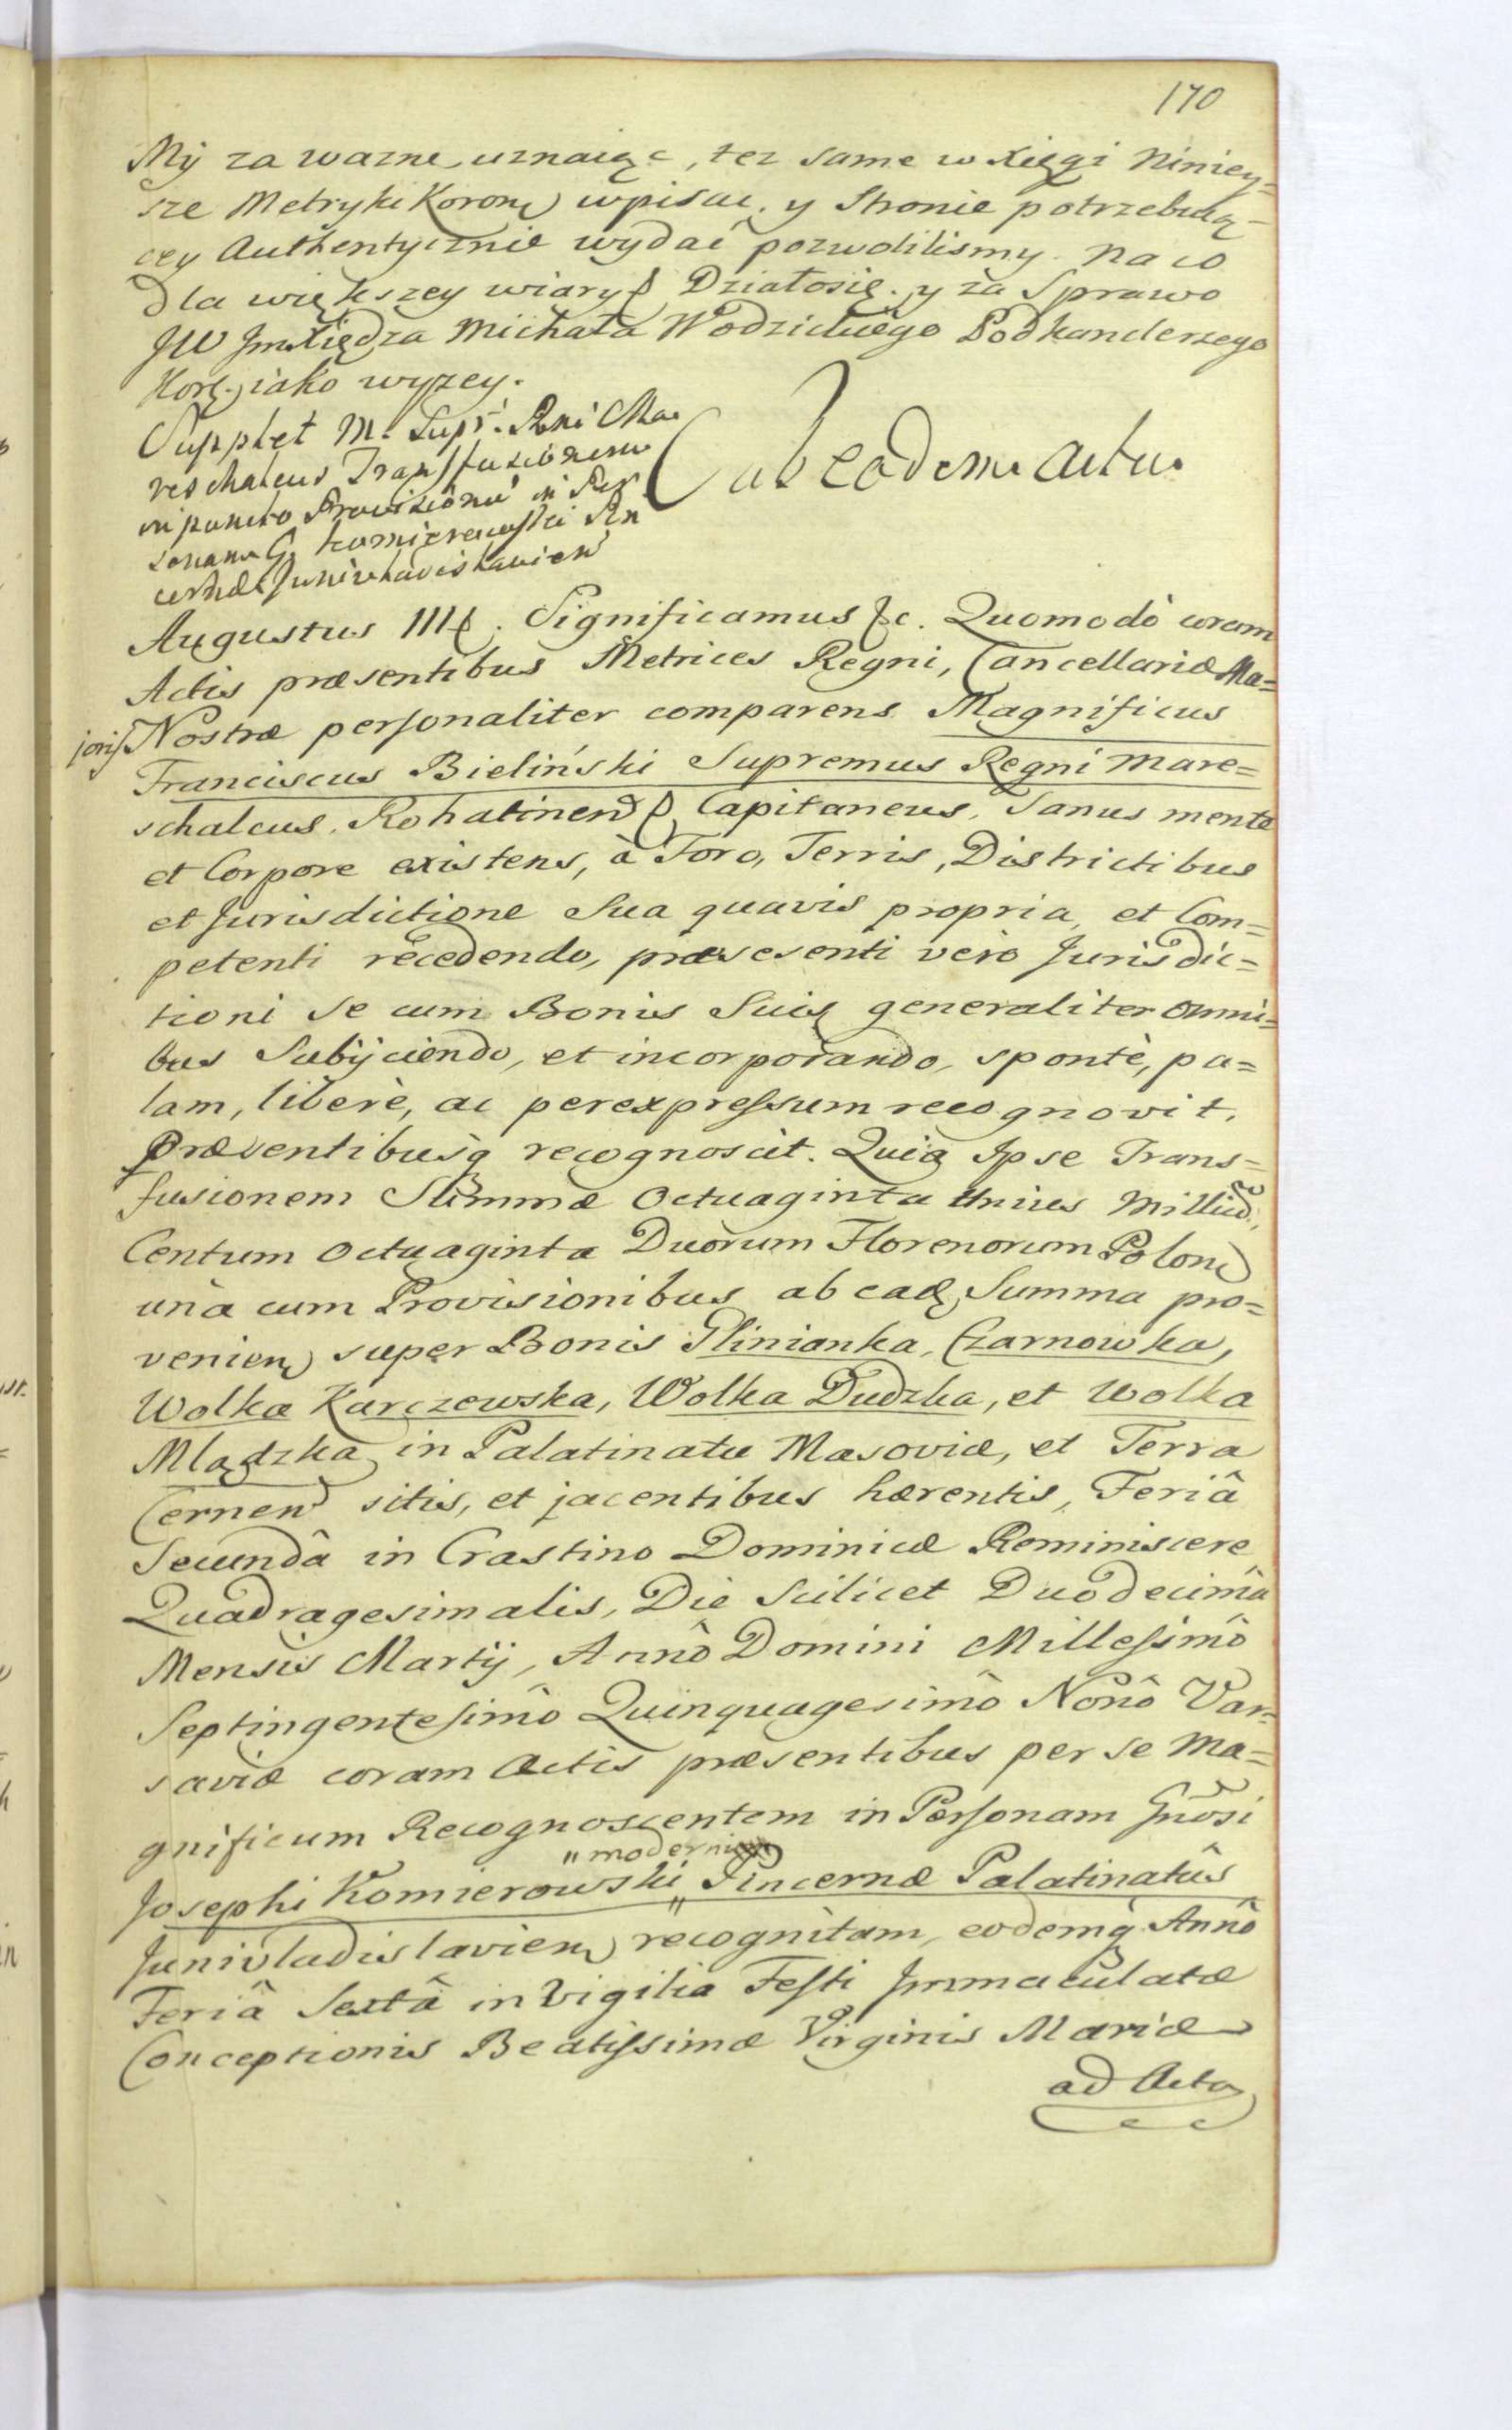 170
My za wazne uznaiąc, tez same w Xięgi Niniey=
sze Metryki Koron wpisac. y Stronie potrzebuią=
cey Authentycznie wydać pozwolilismy. Na co
dla większey wiary Działosię. y za Sprawo
JW JmXiędza Michała Wodzickiego Podkanclerzego
Kor. iako wyzey.
Supplet M. Supr. Rni Ma
reschalcus Transfusionem
in puncto Provisionu in Per
sonam G. Komierowski Pin
cernæ Junivladislavien
ab eodem Actu.
Augustus III. Significamus &c. Quomodò coram
Actis præsentibus Metrices Regni, Cancellariæ Ma=
joris Nostræ personaliter comparens Magnificus
Franciscus Bieliński Supremus Regni Mare=
schalcus, Rohatinen Capitaneus, Sanus mente
et Corpore existens, à Foro, Terris, Districtibus
et Jurisdictione Sua quavis propria, et Com=
petenti recedendo, præsesenti verò Jurisdic=
tioni Se cum Bonis Suis generaliter omni=
bus Subijciendo, et incorporando, spontè, pa=
lam, liberè, ac per expressum recognovit,
Præsentibusq recognoscit. Quia Ipse Trans=
fusionem Summæ Octuaginta Unius Milliū,
Centum Octuaginta Duorum Florenorum Polon
unà cum Provisionibus ab ead Summa pro=
venien super Bonis Glinianka, Czarnowka,
Wolka Karczewska, Wolka Dudzka, et Wolka
Mlądzka in Palatinatu Masoviæ, et Terra
Cernen sitis, et jacentibus hærentis, Feriâ
Secundâ in Crastino Dominicæ Reminiscere
Quadragesimalis, Die Scilicet Duodecima
Mensis Martij, Annô Domini Millesimô
Septingentesimô Quinquagesimô Nonô Var=
saviæ coram Actis præsentibus per Se Ma=
gnificum Recognoscentem in Personam Gnosi
"moderni
Josephi Komierowski " Pincernæ Palatinatûs
Junivladislavien recognitam, eodemq Annô
Feriâ Sextâ in Vigilia Festi Immaculatæ
Conceptionis Beatissimæ Virginis Mariæ
ad Acta